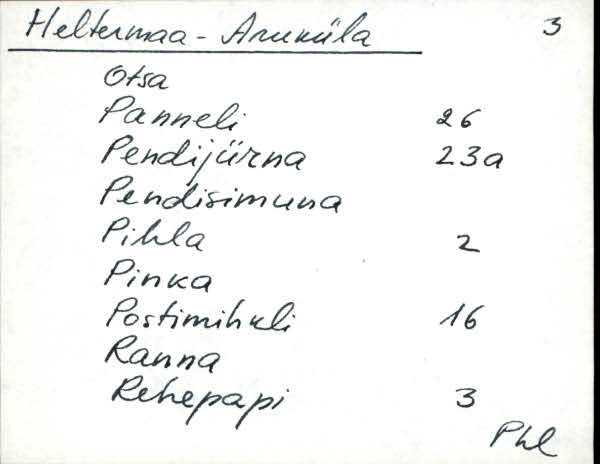 Heltermaa - Aruküla 3
Otsa
Panneli 26
Pendijürna 23a
Pendisimuna
Pihla 2
Pinka
Postimihkli 16
Ranna
Rehepapi 3
Phl